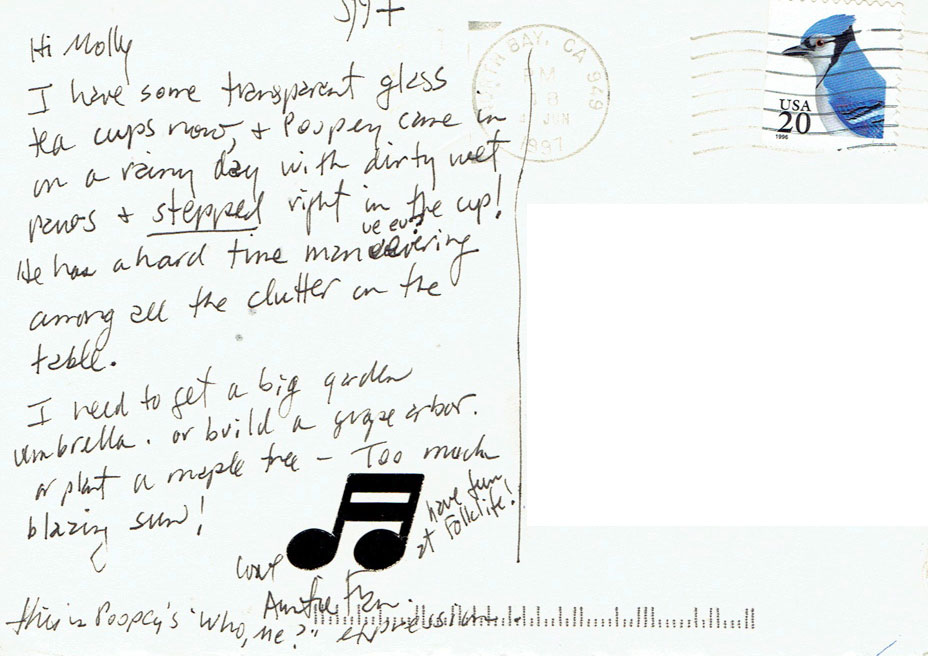 Hi Molly
I have some transparent glass
tea cups now, + Poopey came in
on a rainy day with dirty wet
paws + stepped right in the cup!
He has a hard time maneuvering
among all the clutter on the
table.
I need to get a big garden
umbrella. or build a grape arbor.
or plant a maple tree – Too much
blazing sun!
have fun
at Folklife!
Love
Auntie Fran.
this is Poopey's "who, me?" expression.
BAY, CA 949
PM
8
JUN
1997
USA
20
1996